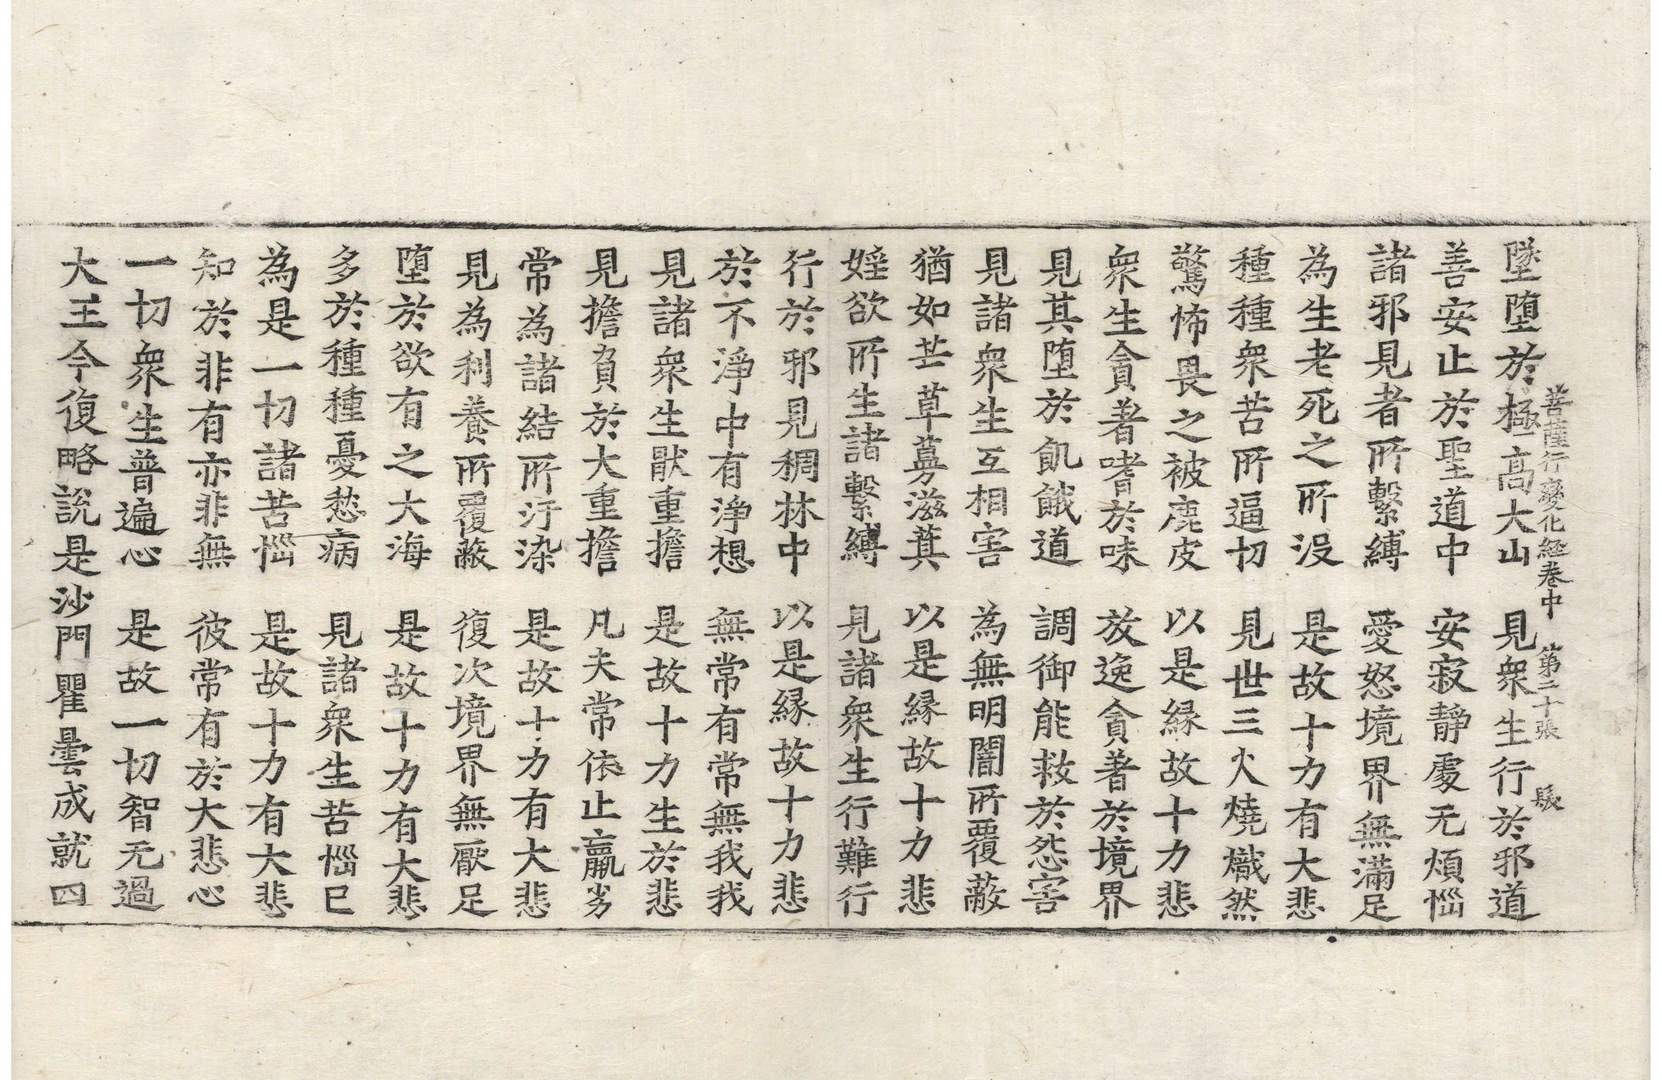 菩薩行變化經卷中　第二十張　髮
墜墮於極高大山　見衆生行於邪道
善安止於聖道中　安寂靜處无煩惱
諸邪見者所繫縛　愛怒境界無滿足
為生老死之所没　是故十力有大悲
種種衆苦所逼切　見世三火燒熾然
驚怖畏之被鹿皮　以是縁故十力悲
衆生貪著嗜於味　放逸貪著於境界
見其墮於飢餓道　調御能救於怨害
見諸衆生互相害　為無明闇所覆蔽
猶如芒草蔓滋蔓　以是縁故十力悲
婬欲所生諸繫縛　見諸衆生行難行
行於邪見稠林中　以是縁故十力悲
於不淨中有淨想　無常有常無我我
見諸衆生猒重擔　是故十力生於悲
見擔負於大重擔　凡夫常依止羸劣
常為諸結所汙染　是故十力有大悲
見為利養所覆蔽　復次境界無厭足
墮於欲有之大海　是故十力有大悲
多於種種憂愁病　見諸衆生苦惱已
為是一切諸苦惱　是故十力有大悲
知於非有亦非無　彼常有於大悲心
一切衆生普遍心　是故一切智无過
大王今復略說是沙門瞿曇成就四